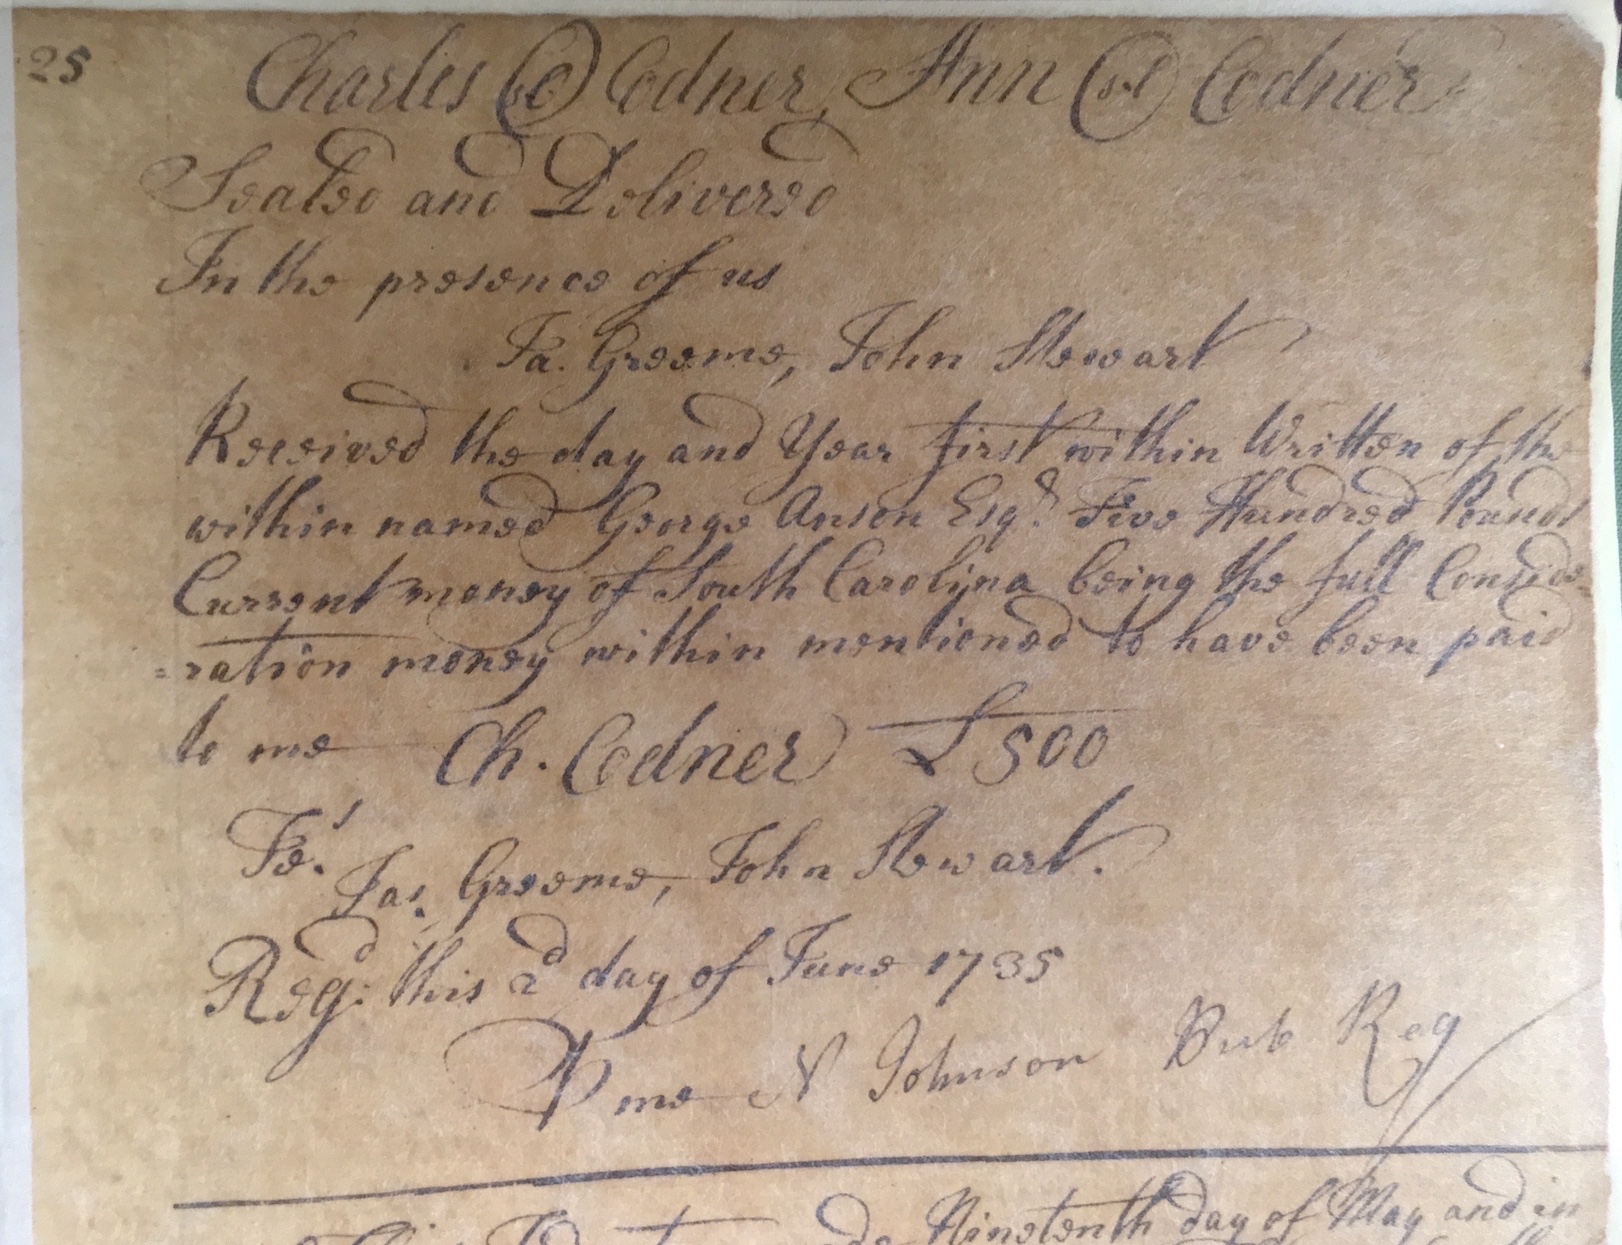 25
Charles Codner, Ann Codner
Sealed and Delivered
In the presence of us
Ja. Greeme, John Stewart
Received the day and Year first within Written of the
within named George Anson Esqr. Five Hundred Pounds
Current money of South Carolina being the full Conside
=ration money within mentioned to have been paid
to me Ch. Codner £500
Te.
Jas. Greeme, John Stewart.
Regd: this 2d day of June 1735
me N Johnson Pub Reg
Nineteenth day of May and in